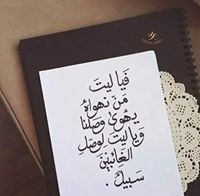 فَيا ليتَ
مَن نهواهُ
يهوىٰ وصلنا
ويا ليت لوصلِ
الغائبينَ
سَبيلُ .